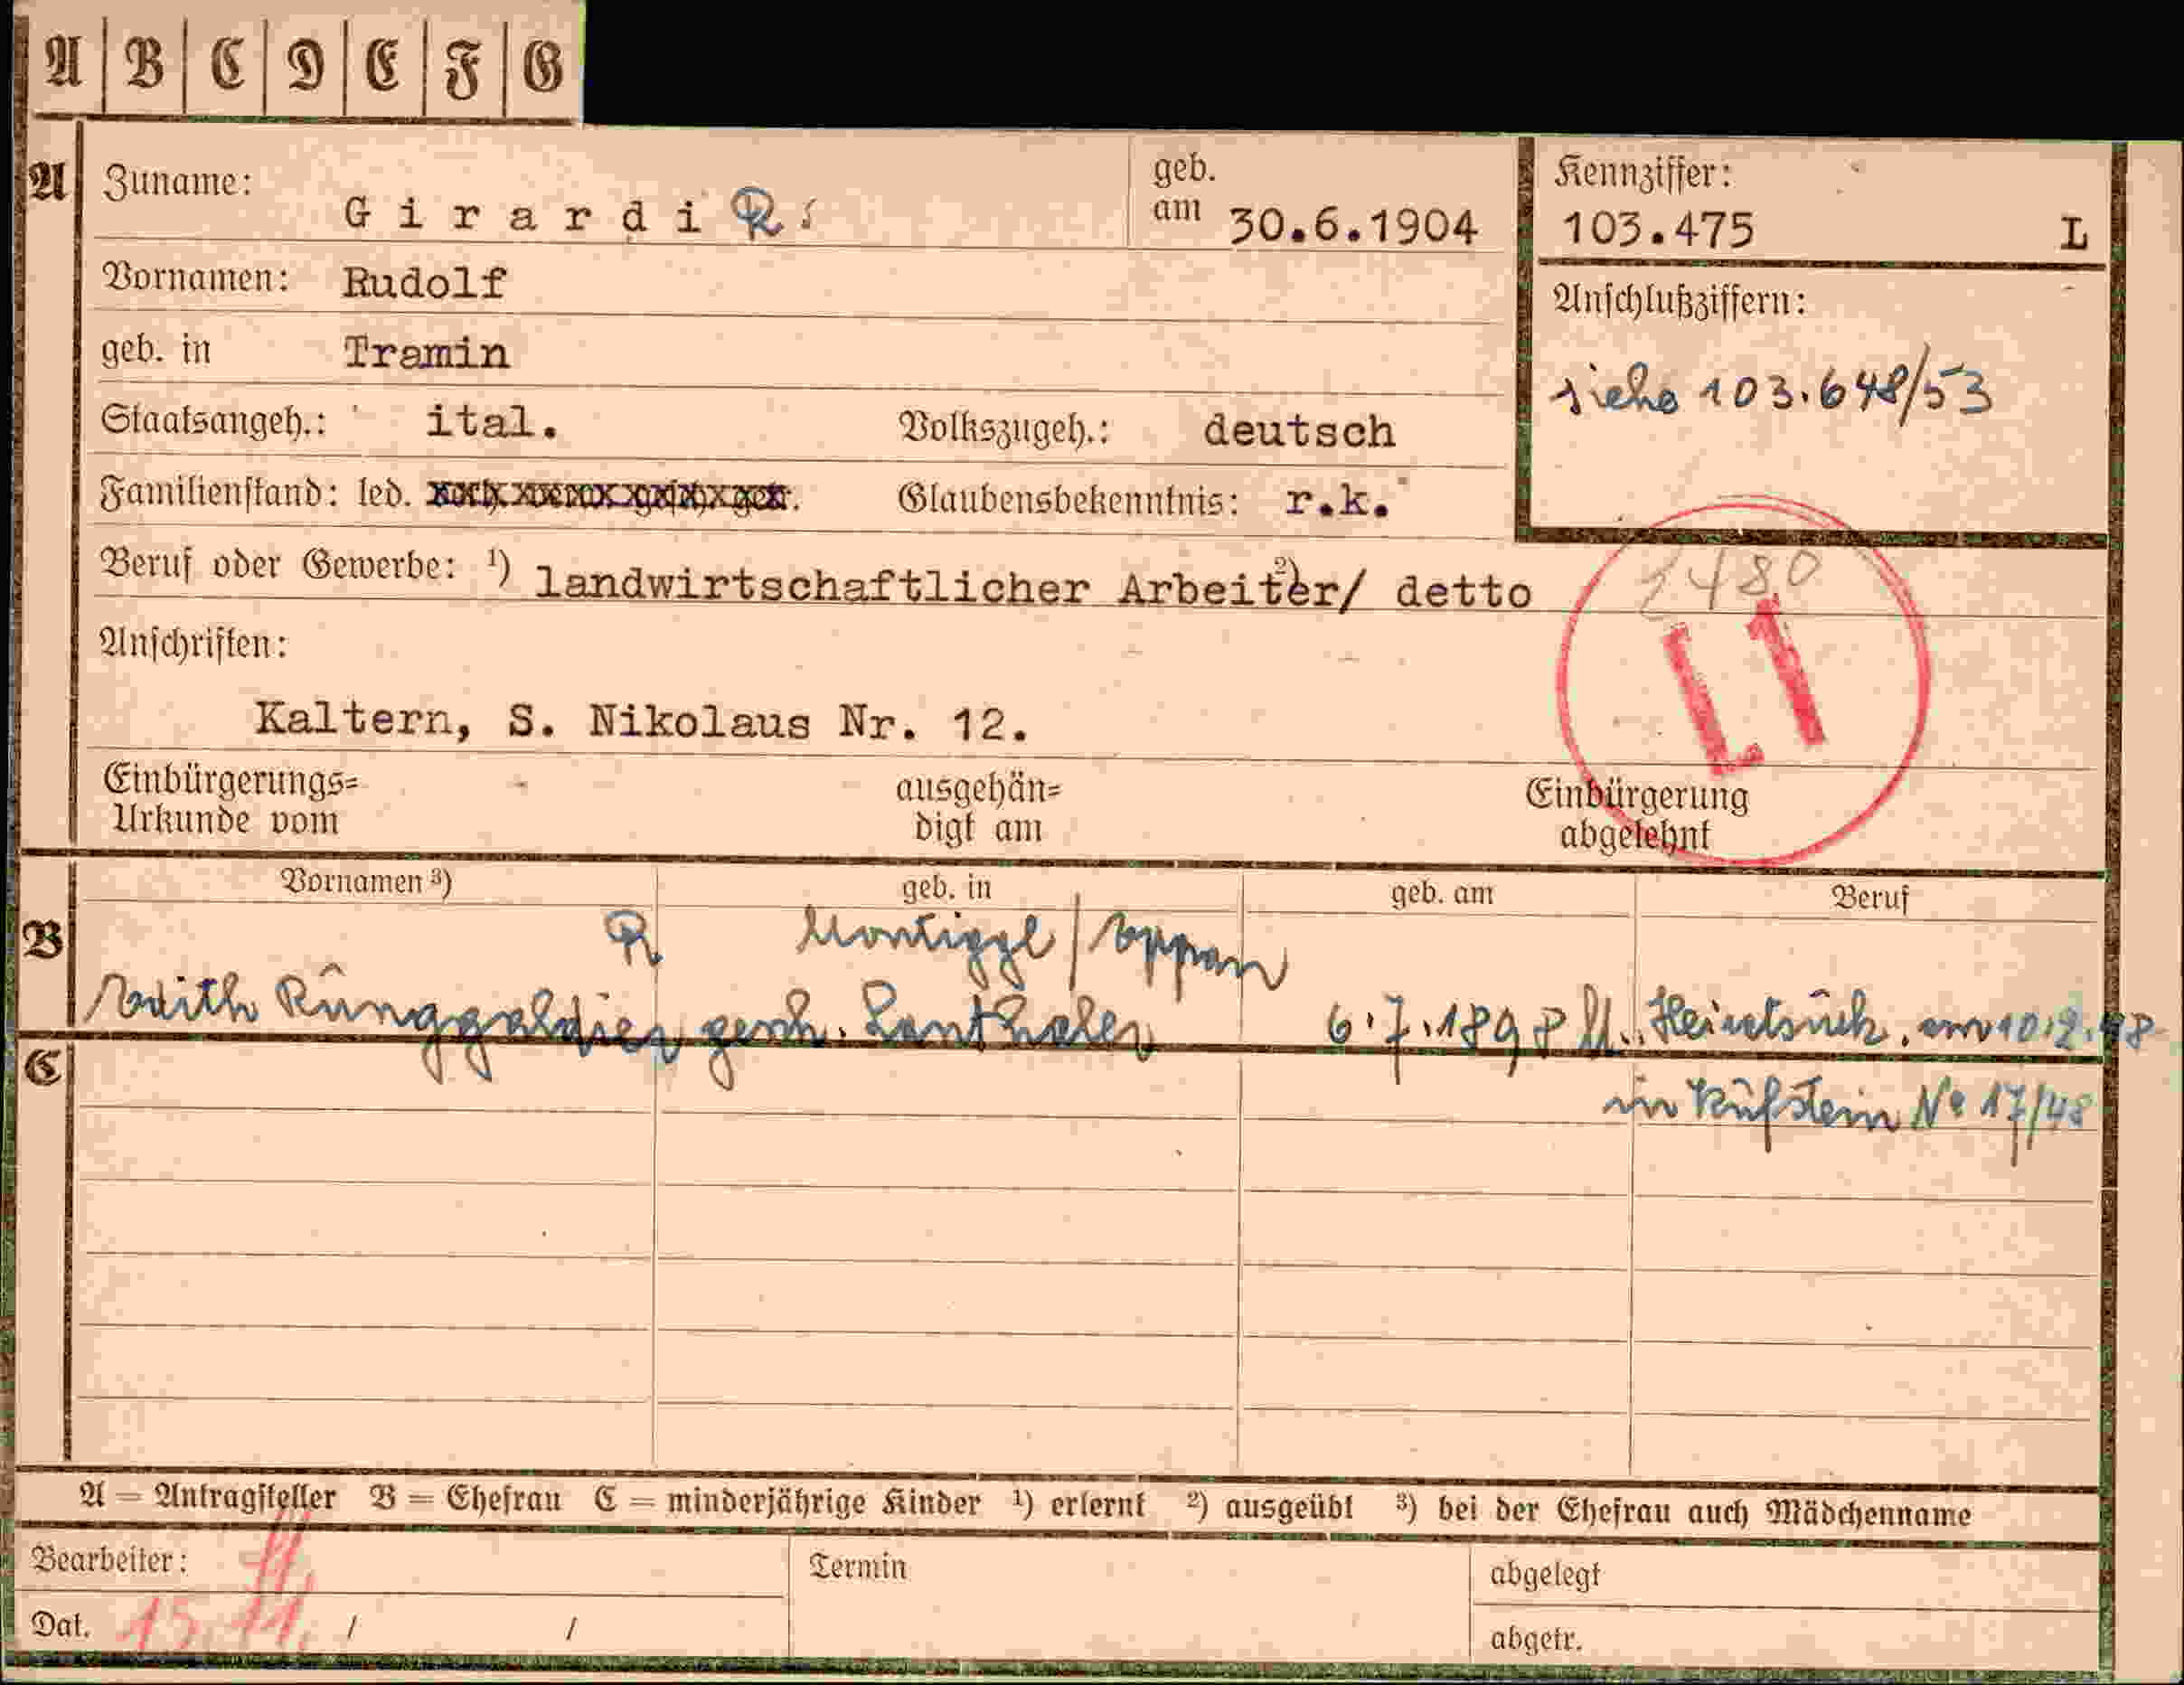 A B C D E F G
A Zuname: Girardi R
geb. am 30.6.1904
Kennziffer: 103.475 L
Vornamen: Rudolf
Anschlußziffern:
siehe 103.648/53
geb. in Tramin
Staatsangeh.: ital. Volkszugeh.: deutsch
Familienstand: led. Glaubensbekenntnis: r.k.
Beruf oder Gewerbe: ¹) landwirtschaftlicher Arbeiter/ ²) detto
2480
L1
Anschriften:
Kaltern, S. Nikolaus Nr. 12.
Einbürgerungs=
Urkunde vom
ausgehän=
digt am
Einbürgerung
abgelehnt
Vornamen ³) geb. in geb. am Beruf
B R Montiggl / Eppan
Runggaldier gesch. Lanthaler 6.7.1898 Heiratsurk. am 10.2.48
C in Kufstein No 17/48
A = Antragsteller B = Ehefrau C = minderjährige Kinder ¹) erlernt ²) ausgeübt ³) bei der Ehefrau auch Mädchenname
Bearbeiter: Termin abgelegt
Dat. 15.11. / / abgetr.